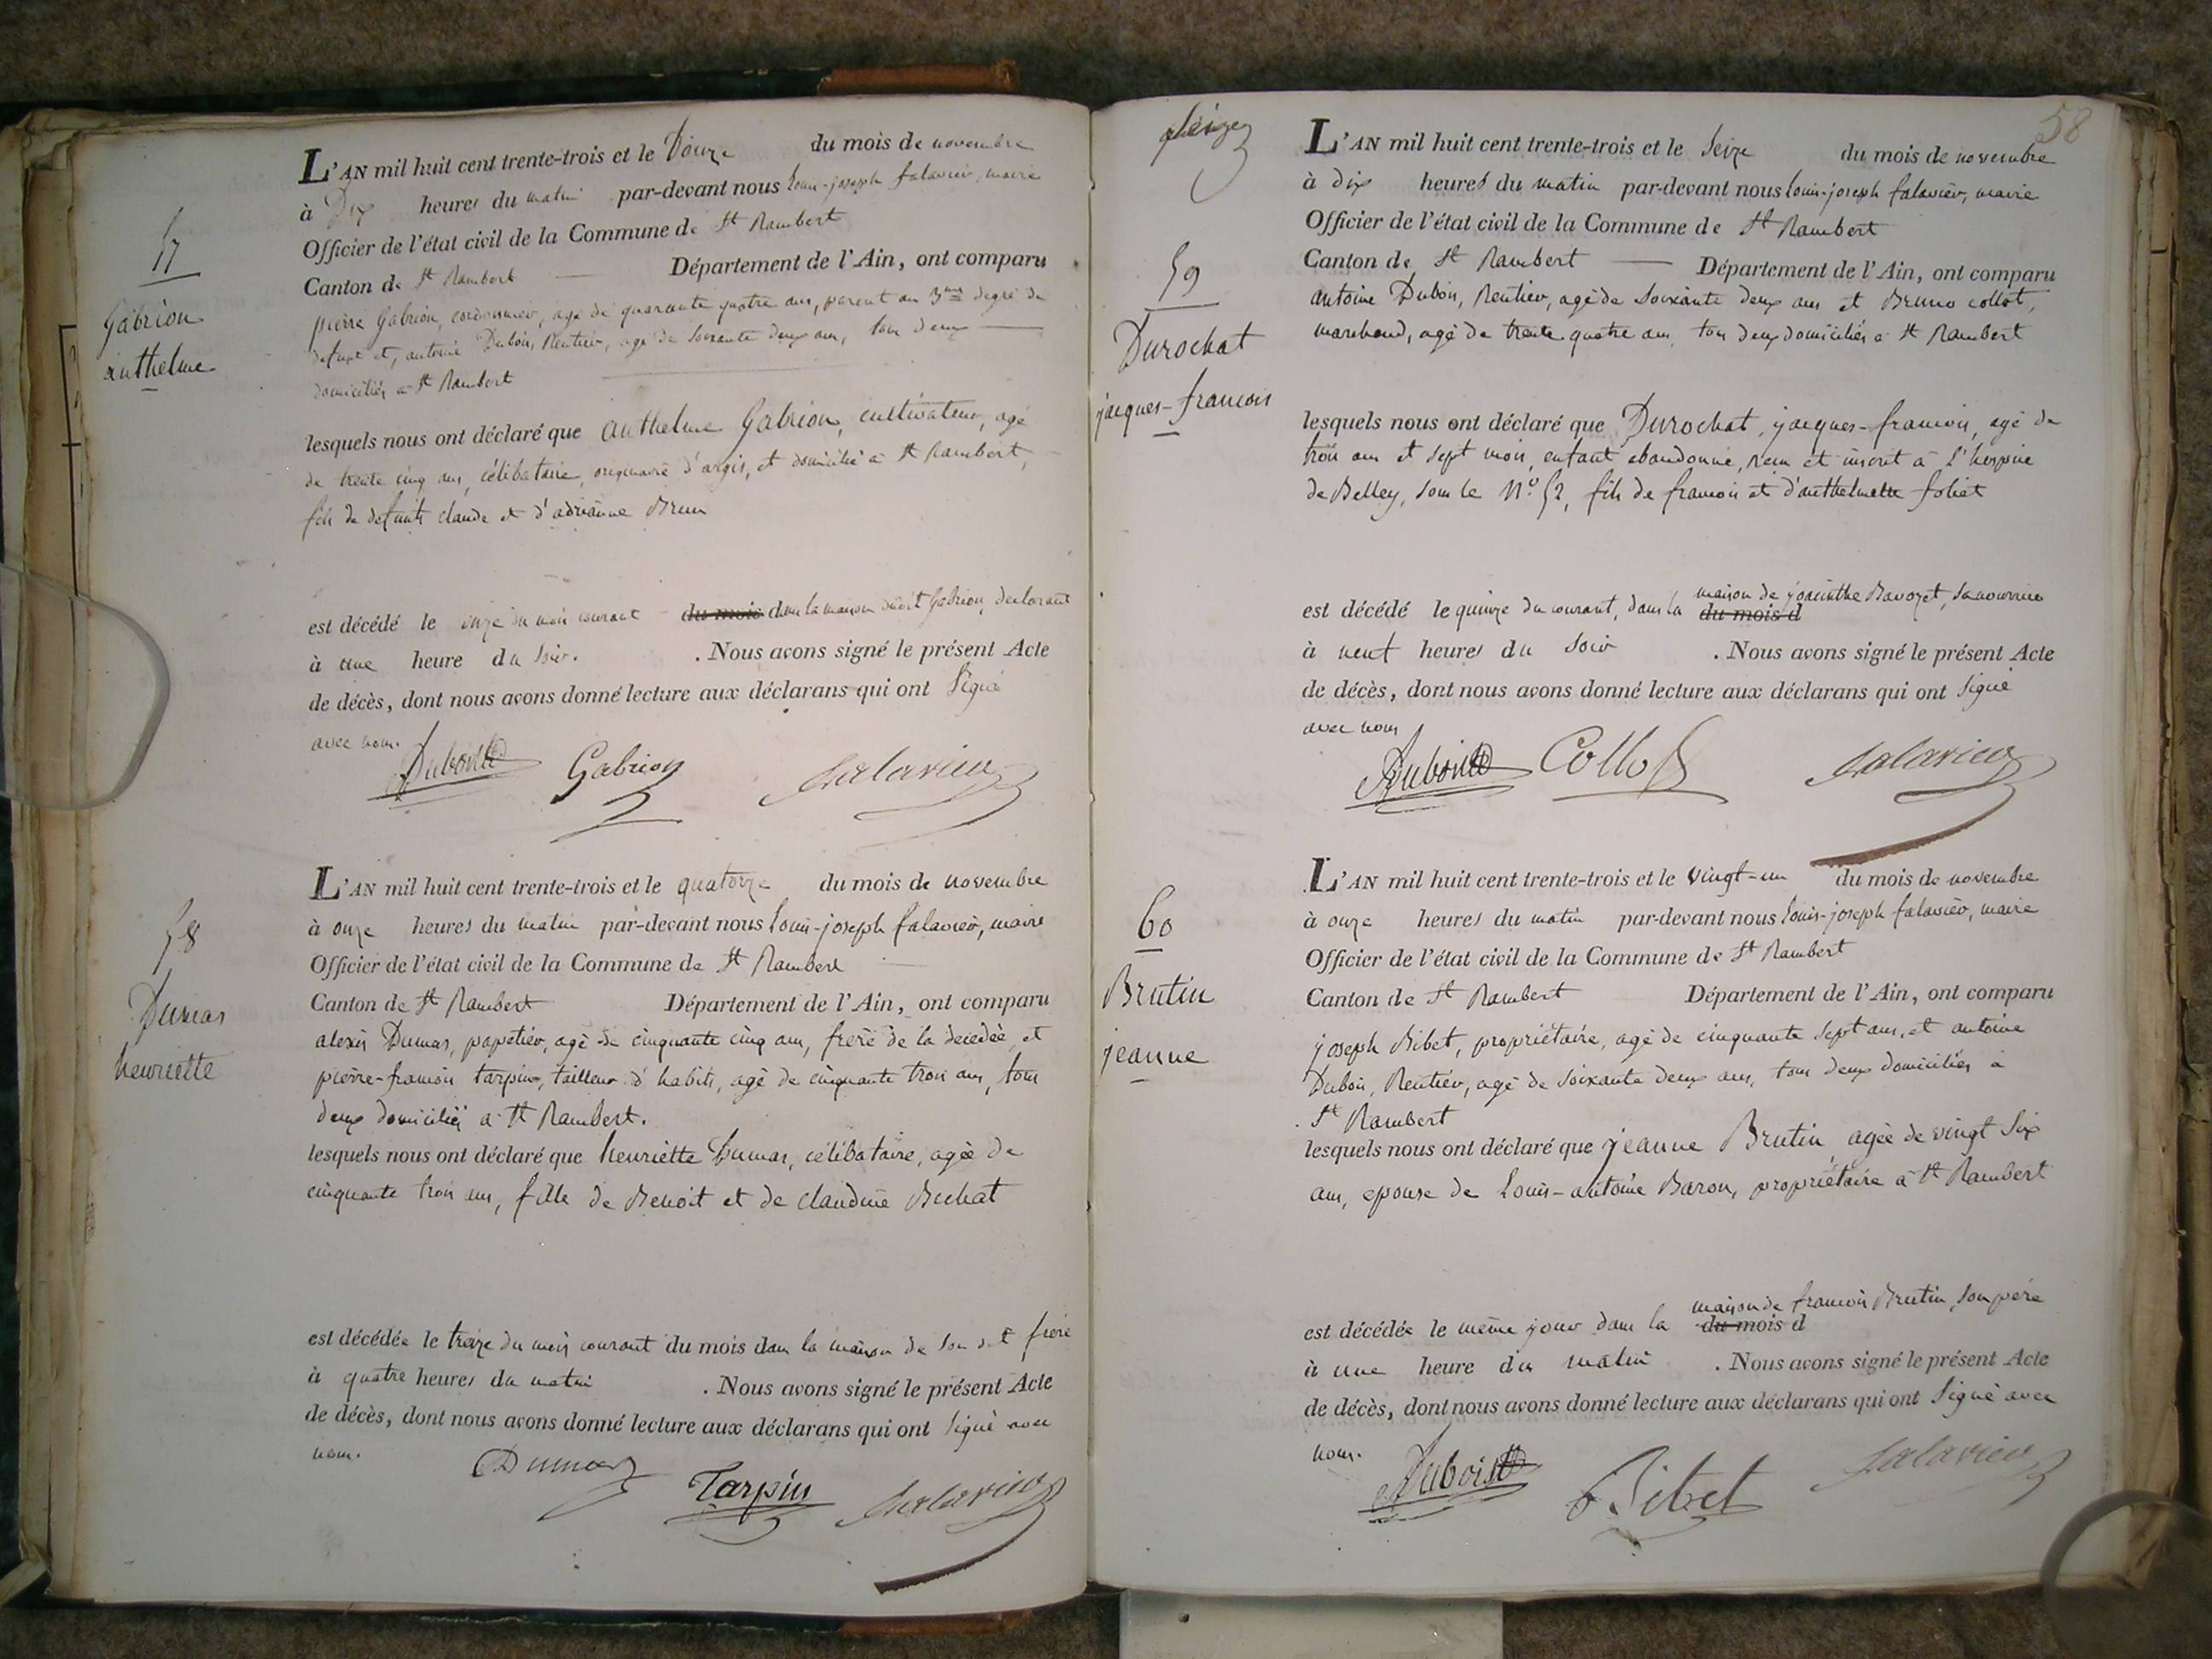 57
Gabrion
anthelme
L'AN mil huit cent trente-trois et le Douze du mois de novembre
à Dix heures du matin par-devant nous Louis-joseph falavier, maire
Officier de l'état civil de la Commune de St Rambert
Canton de St Rambert — Département de l'Ain, ont comparu
pierre Gabrion, cordonnier, agé de quarante quatre ans, parent au 3me degré du
defunt et, antoine Dubois, Rentier, agé de soixante deux ans, tous deux
domiciliés a St Rambert
lesquels nous ont déclaré que anthelme Gabrion, cultivateur, agé
de trente cinq ans, célibataire, originaire d'argis, et domicilié a St Rambert,
fils de defunts claude et d'adrianne Brun
est décédé le onze du mois courant du mois dans la maison dudit Gabrion, declarant
à une heure du soir. . Nous avons signé le présent Acte
de décès, dont nous avons donné lecture aux déclarans qui ont Signé
avec nous.
Dubois Gabrion falavier
58
Dumas
henriette
L'AN mil huit cent trente-trois et le quatorze du mois de novembre
à onze heures du matin par-devant nous Louis-joseph falavier, maire
Officier de l'état civil de la Commune de St Rambert
Canton de St Rambert Département de l'Ain, ont comparu
alexis Dumas, papetier, agé de cinquante cinq ans, frère de la decedée, et
pierre-francois tarpin, tailleur d'habits, agé de cinquante trois ans, tous
deux domiciliés a St Rambert.
lesquels nous ont déclaré que henriette Dumas, célibataire, agée de
cinquante trois ans, fille de Benoit et de claudine Buchat
est décédée le treize du mois courant du mois dans la maison de son dit frere
à quatre heures du matin . Nous avons signé le présent Acte
de décès, dont nous avons donné lecture aux déclarans qui ont Signé avec
nous.
Dumas Tarpin falavier
58
seize
59
Durochat
jacques-francois
L'AN mil huit cent trente-trois et le Seize du mois de novembre
à dix heures du matin par-devant nous Louis-joseph falavier, maire
Officier de l'état civil de la Commune de St Rambert
Canton de St Rambert — Département de l'Ain, ont comparu
antoine Dubois, Rentier, agé de Soixante deux ans et Bruno collot,
marchand, agé de trente quatre ans tous deux domiciliés a St Rambert
lesquels nous ont déclaré que Durochat, jacques-francois, agé de
trois ans et sept mois, enfant abandonné, reçu et inscrit a l'hospice
de Belley, sous le No 52, fils de francois et d'anthelmette foliet
est décédé le quinze du courant, dans la maison de jacinthe Bavozet, sa nourrice
du mois d
à neuf heures du soir . Nous avons signé le présent Acte
de décès, dont nous avons donné lecture aux déclarans qui ont signé
avec nous
Dubois Collot falavier
60
Brutin
jeanne
L'AN mil huit cent trente-trois et le vingt-un du mois de novembre
à onze heures du matin par-devant nous Louis-joseph falavier, maire
Officier de l'état civil de la Commune de St Rambert
Canton de St Rambert Département de l'Ain, ont comparu
joseph Bibet, propriétaire, agé de cinquante Sept ans, et antoine
Dubois, Rentier, agé de soixante deux ans, tous deux domiciliés a
St Rambert
lesquels nous ont déclaré que jeanne Brutin agée de vingt Six
ans, epouse de Louis-antoine Baron, propriétaire a St Rambert
est décédée le même jour dans la maison de francois Brutin, son père
du mois d
à une heure du matin . Nous avons signé le présent Acte
de décès, dont nous avons donné lecture aux déclarans qui ont Signé avec
nous.
Dubois Bibet falavier